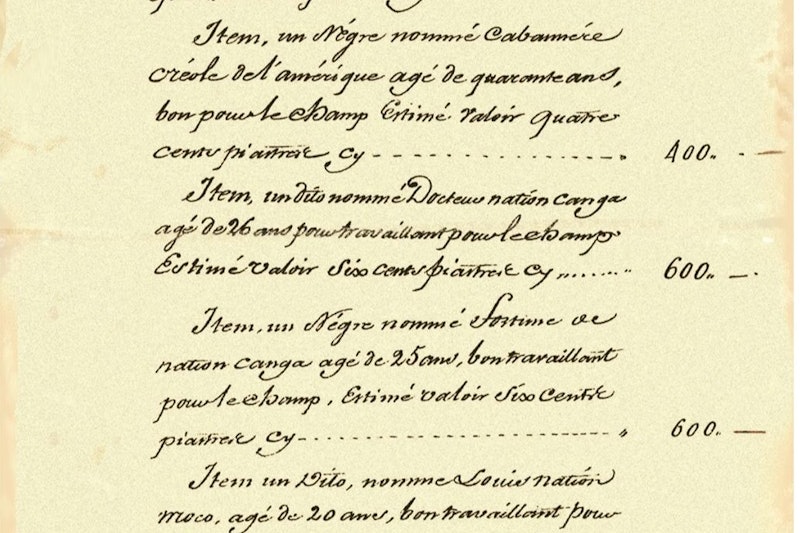 Item, un Négre nommé Cabannére
créole de l'amérique agé de quarante ans,
bon pour le champ Estimé valoir quatre
cents piastres Cy - - - - - - - - - - - - - „ 400.. - —
Item, un dito nommé Docteur nation canga
agé de 26 ans pour travaillant pour le champ
Estimé valoir Six cents piastres Cy „....... 600.. —.
Item, un Négre nommé fortime de
nation canga agé de 25 ans, bon travaillant
pour le champ, Estimé valoir Six cents
piastres Cy - - - - - - - - - - - - - - - „ 600.. —
Item un Dito, nomme Louis nation
moco, agé de 20 ans, bon travaillant pour